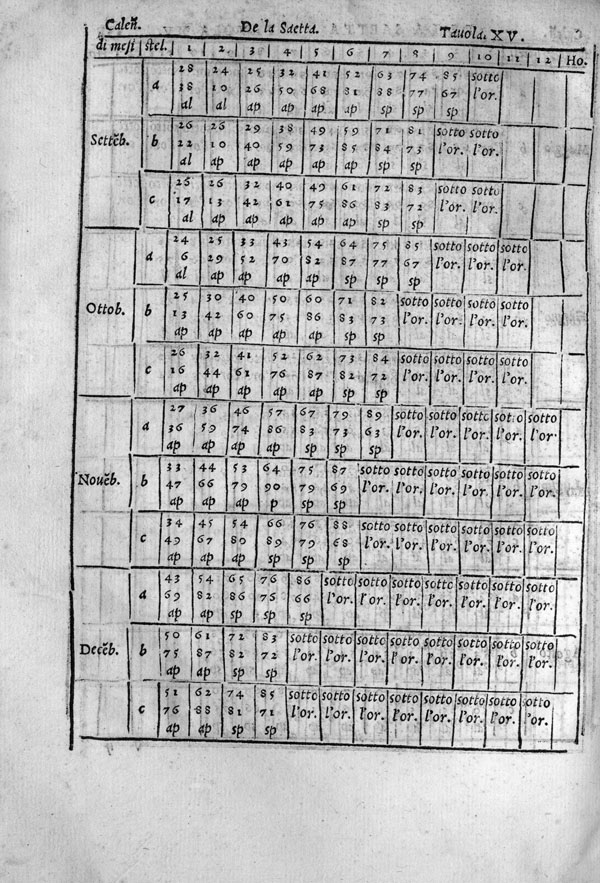 Caleñ. De la Saetta. Tauola. XV.
di mesi stel. 1 2 3 4 5 6 7 8 9 10 11 12 Ho.
28 24 25 32 41 52 63 74 85 sotto
a 38 10 26 50 68 81 88 77 67 l'or.
al al ap ap ap ap sp sp sp
26 26 29 38 49 59 71 81 sotto sotto
Settẽb. b 22 10 40 59 73 85 84 73 l'or. l'or.
al ap ap ap ap ap sp sp
26 26 32 40 49 61 72 83 sotto sotto
c 17 13 42 61 75 86 83 72 l'or. l'or.
al ap ap ap ap ap sp sp
24 25 33 43 54 64 75 85 sotto sotto sotto
a 6 29 52 70 82 87 77 67 l'or. l'or. l'or.
al ap ap ap ap sp sp sp
25 30 40 50 60 71 82 sotto sotto sotto sotto
Ottob. b 13 42 60 75 86 83 73 l'or. l'or. l'or. l'or.
ap ap ap ap ap sp sp
26 32 41 52 62 73 84 sotto sotto sotto sotto
c 16 44 61 76 87 82 72 l'or. l'or. l'or. l'or.
ap ap ap ap ap sp sp
27 36 46 57 67 79 89 sotto sotto sotto sotto sotto
a 36 59 74 86 83 73 63 l'or. l'or. l'or. l'or. l'or.
ap ap ap ap sp sp sp
33 44 53 64 75 87 sotto sotto sotto sotto sotto sotto
Nouẽb. b 47 66 79 90 79 69 l'or. l'or. l'or. l'or. l'or. l'or.
ap ap ap p sp sp
34 45 54 66 76 88 sotto sotto sotto sotto sotto sotto
c 49 67 80 89 79 68 l'or. l'or. l'or. l'or. l'or. l'or.
ap ap ap sp sp sp
43 54 65 76 86 sotto sotto sotto sotto sotto sotto sotto
a 69 82 86 76 66 l'or. l'or. l'or. l'or. l'or. l'or. l'or.
ap ap sp sp sp
50 61 72 83 sotto sotto sotto sotto sotto sotto sotto sotto
Decẽb. b 75 87 82 72 l'or. l'or. l'or. l'or. l'or. l'or. l'or. l'or.
ap ap sp sp
51 62 74 85 sotto sotto sotto sotto sotto sotto sotto sotto
c 76 88 81 71 l'or. l'or. l'or. l'or. l'or. l'or. l'or. l'or.
ap ap sp sp